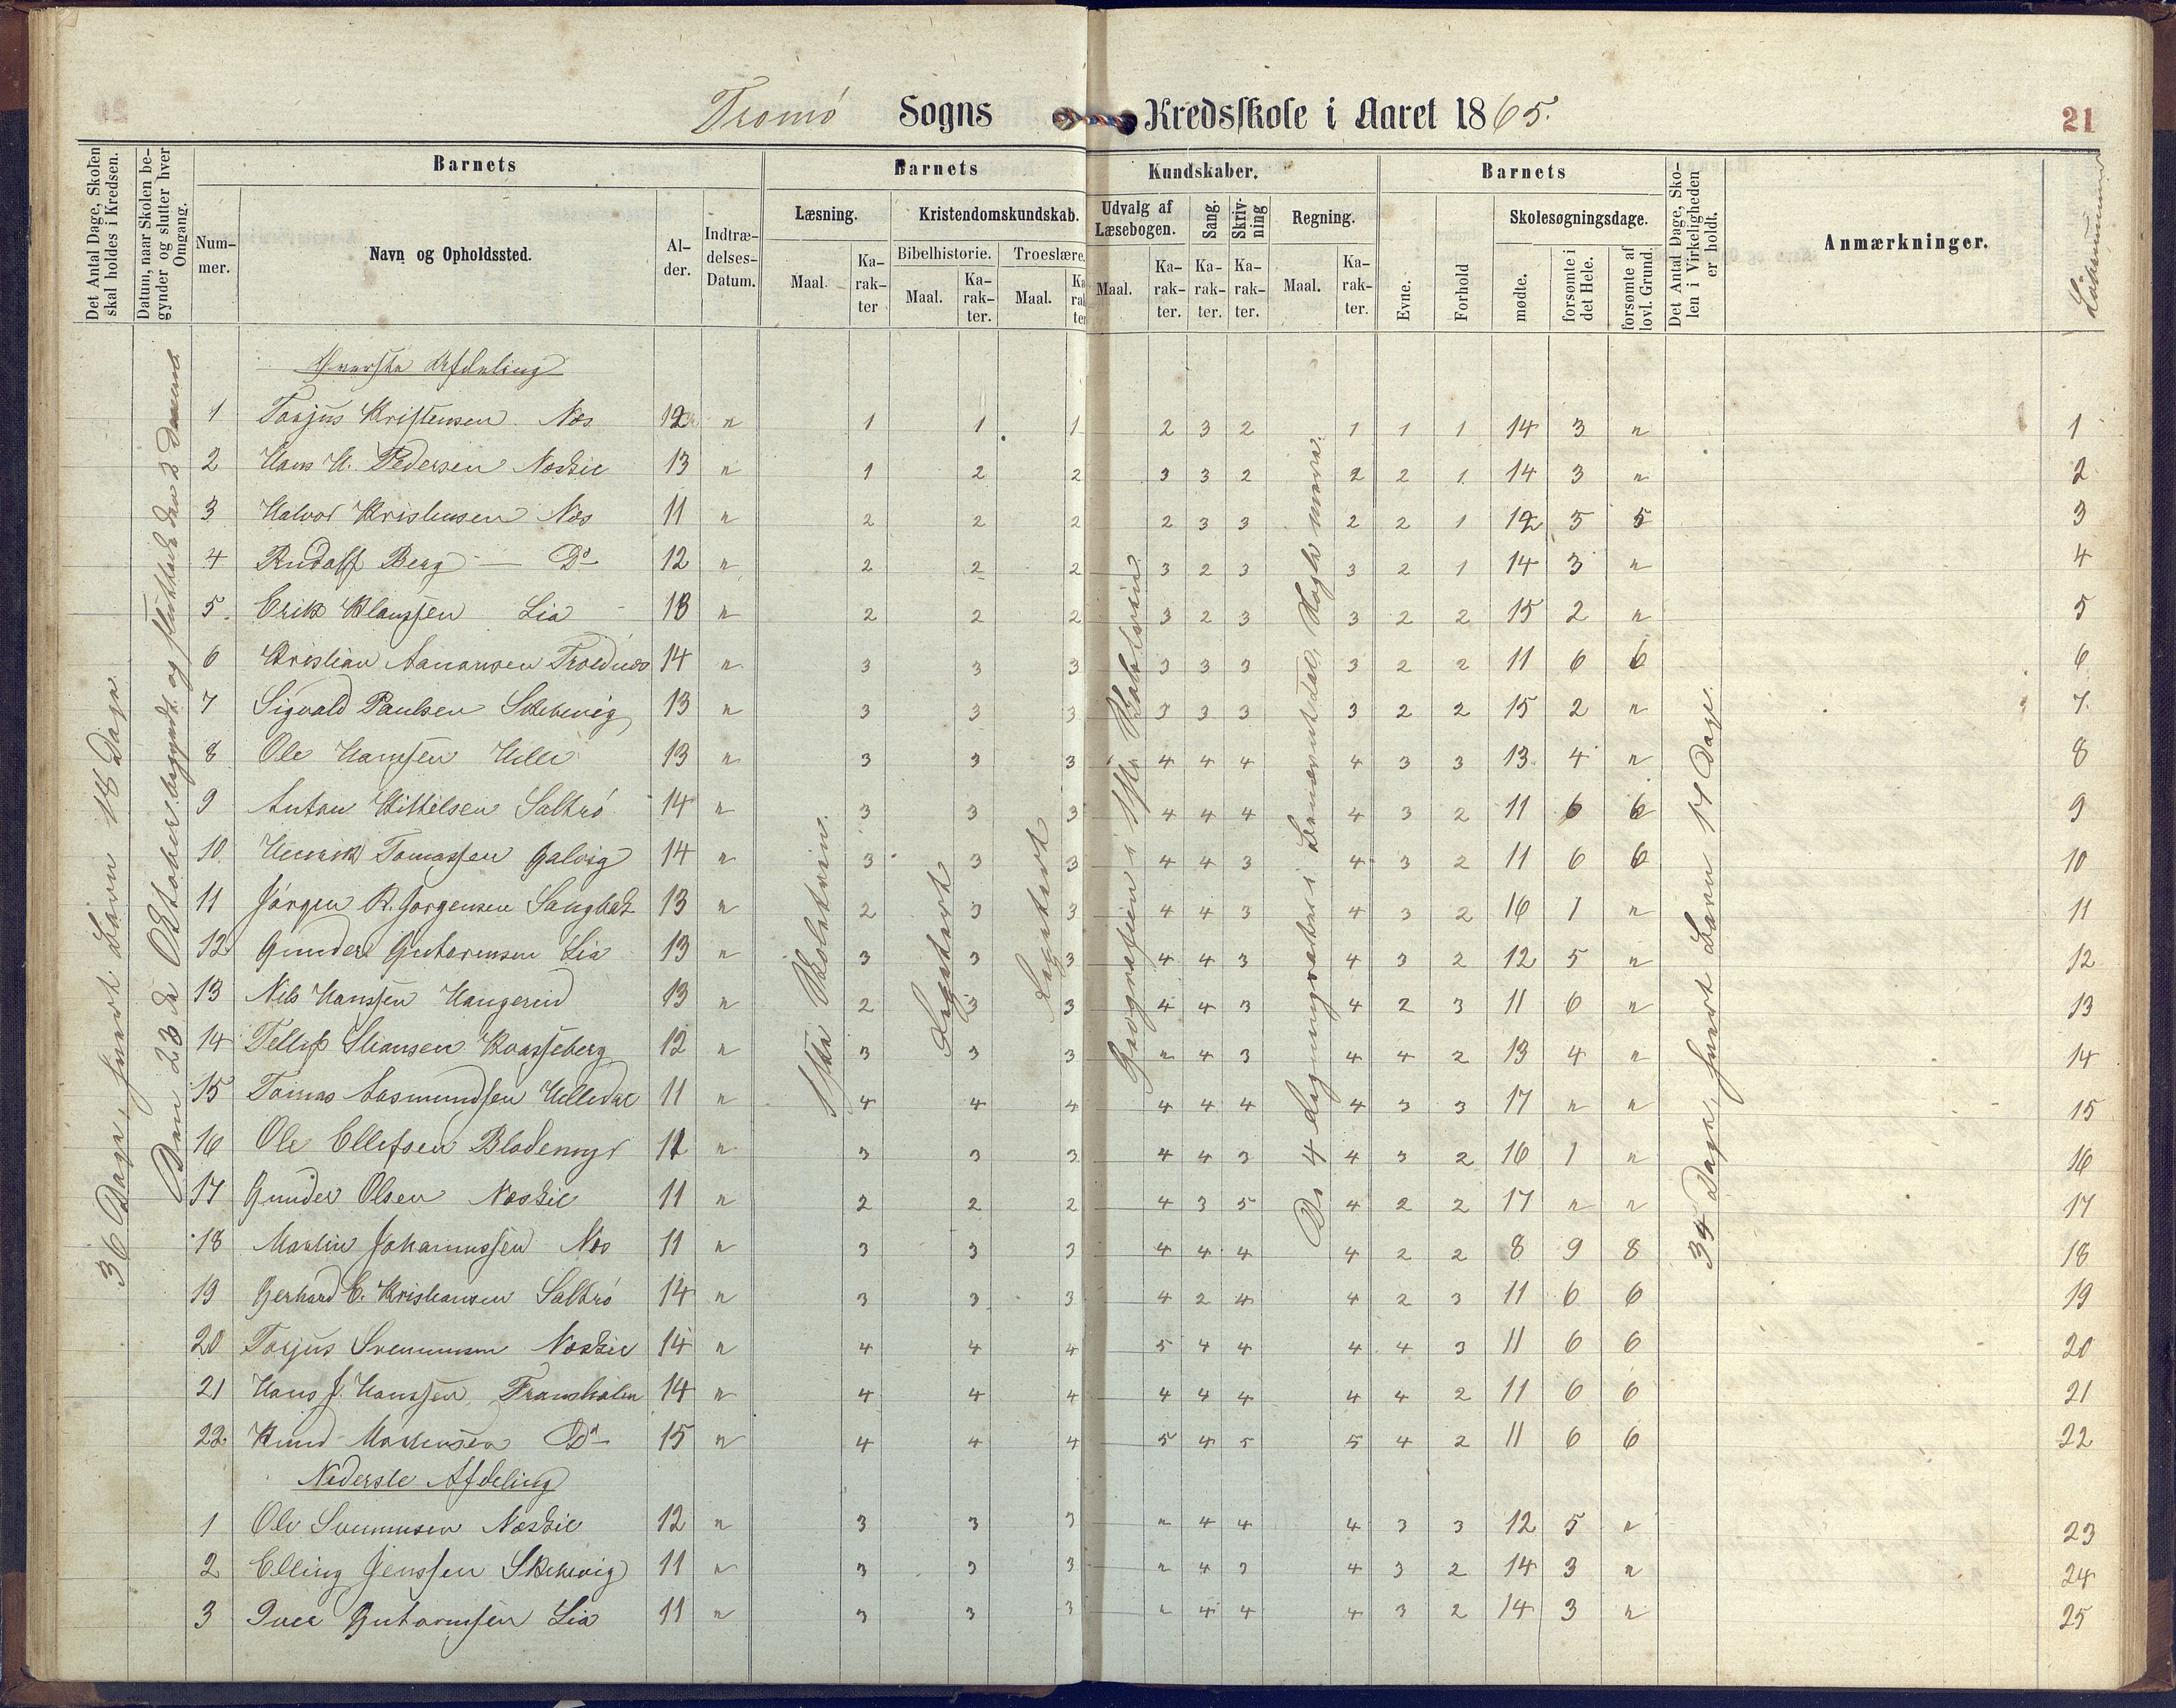 Tromö Sogns Kredsskole i Aaret 1865.
21
Det Antal Dage, Skolen skal holdes i Kredsen.
Datum, naar Skolen begynder og slutter hver Omgang.
Barnets
Nummer.
Navn og Opholdssted.
Alder.
Indtrædelses-Datum.
Barnets Kundskaber.
Læsning.
Maal.
Karakter
Kristendomskundskab.
Bibelhistorie.
Maal.
Karakter.
Troeslære.
Maal.
Karakter
Udvalg af Læsebogen.
Maal.
Karakter.
Sang.
Karakter.
Skrivning
Karakter.
Regning.
Maal.
Karakter.
Barnets
Evne.
Forhold
Skolesøgningsdage.
mødte.
forsømte i det Hele.
forsømte af lovl. Grund.
Det Antal Dage, Skolen i Virkeligheden er holdt.
Anmærkninger.
Løbenummer
36 Dage, hvert Barn 18 Dage.
Den 23de Oktober begyndt og sluttede den 2
Øverste Afdeling
1 Tarjus Kristensen Næs 12 " 1 1 1 2 3 2 1 1 1 14 3 " 1
2 Hans H. Pedersen Neskil 13 " 1 2 2 3 3 2 2 2 1 14 3 " 2
3 Halvor Kristensen Næs 11 " 2 2 2 2 3 3 2 2 1 12 5 5 3
4 Rudolf Berg — Do 12 " 2 2 2 3 2 3 3 2 1 14 3 " 4
5. Erik Klaussen Lia 13 " 2 2 2 3 2 3 3 2 2 15 2 " 5
6 Kristian Aanonsen Troldnæs 14 " 3 3 3 3 3 3 3 2 2 11 6 6 6
7 Sigvald Paulsen Skilsvig 13 " 3 3 3 3 3 3 3 2 2 15 2 " 7.
8 Ole Hanssen Hille 13 " 3 3 3 4 4 4 4 3 3 13 4 " 8
9 Anton Kittelsen Saltrö 14 " 3 3 3 4 4 4 4 3 2 11 6 6 9
10. Henrik Tomassen Galvig 14 " 3 3 3 4 4 3 4 3 2 11 6 6 10
11 Jörgen R. Jorgensen 13 " 2 3 3 4 4 3 4 3 2 16 1 " 11
12 Gunder Gutormsen Lia 13 " 3 3 3 4 4 3 4 3 2 12 5 " 12
13 Nils Hanssen Haugerud 13 " 2 3 3 4 4 3 4 2 3 11 6 " 13
14 Tellef Stiansen 12 " 3 3 3 " 4 3 4 4 2 13 4 " 14
15 Tomas Aasmundsen 11 " 4 4 4 4 4 4 4 3 3 17 " " 15
16 Ole Ellefsen Blodemyr 11 " 3 3 3 4 4 3 4 3 2 16 1 " 16
17 Gunder Olsen Neskil 11 " 2 2 2 4 3 5 4 2 2 17 " " 17
18 Martin Johannessen Næs 11 " 3 3 3 4 4 4 4 2 2 8 9 8 18
19 Gerhard C. Kristiansen Saltrö 14 " 3 3 3 4 2 4 4 2 3 11 6 6 19
20 Torjus Svenumsen Neskil 14 " 4 4 4 5 4 4 4 4 3 11 6 6 20
21 Hans J. Hanssen Framholm 14 " 4 4 4 4 4 4 4 4 2 11 6 6 21
22. Knud Mortensen Do 15 " 4 4 4 5 4 5 5 4 2 11 6 6 22
Nederste Afdeling
1 Ole Svenumsen Neskil 12 " 3 3 3 " 4 4 4 3 3 12 5 " 23
2 Elling Jenssen Skilsvig 11 " 3 3 3 " 4 3 4 3 2 14 3 " 24
3 Iver Gutormsen Lia 11 " 3 3 3 " 4 4 4 3 2 14 3 " 25
1ste Skoletrin.
Repetert
Repetert
Geografien i 1ste Skoletrin
De 4 Regningsarter i
34 Dage, hvert Barn 17 Dage.